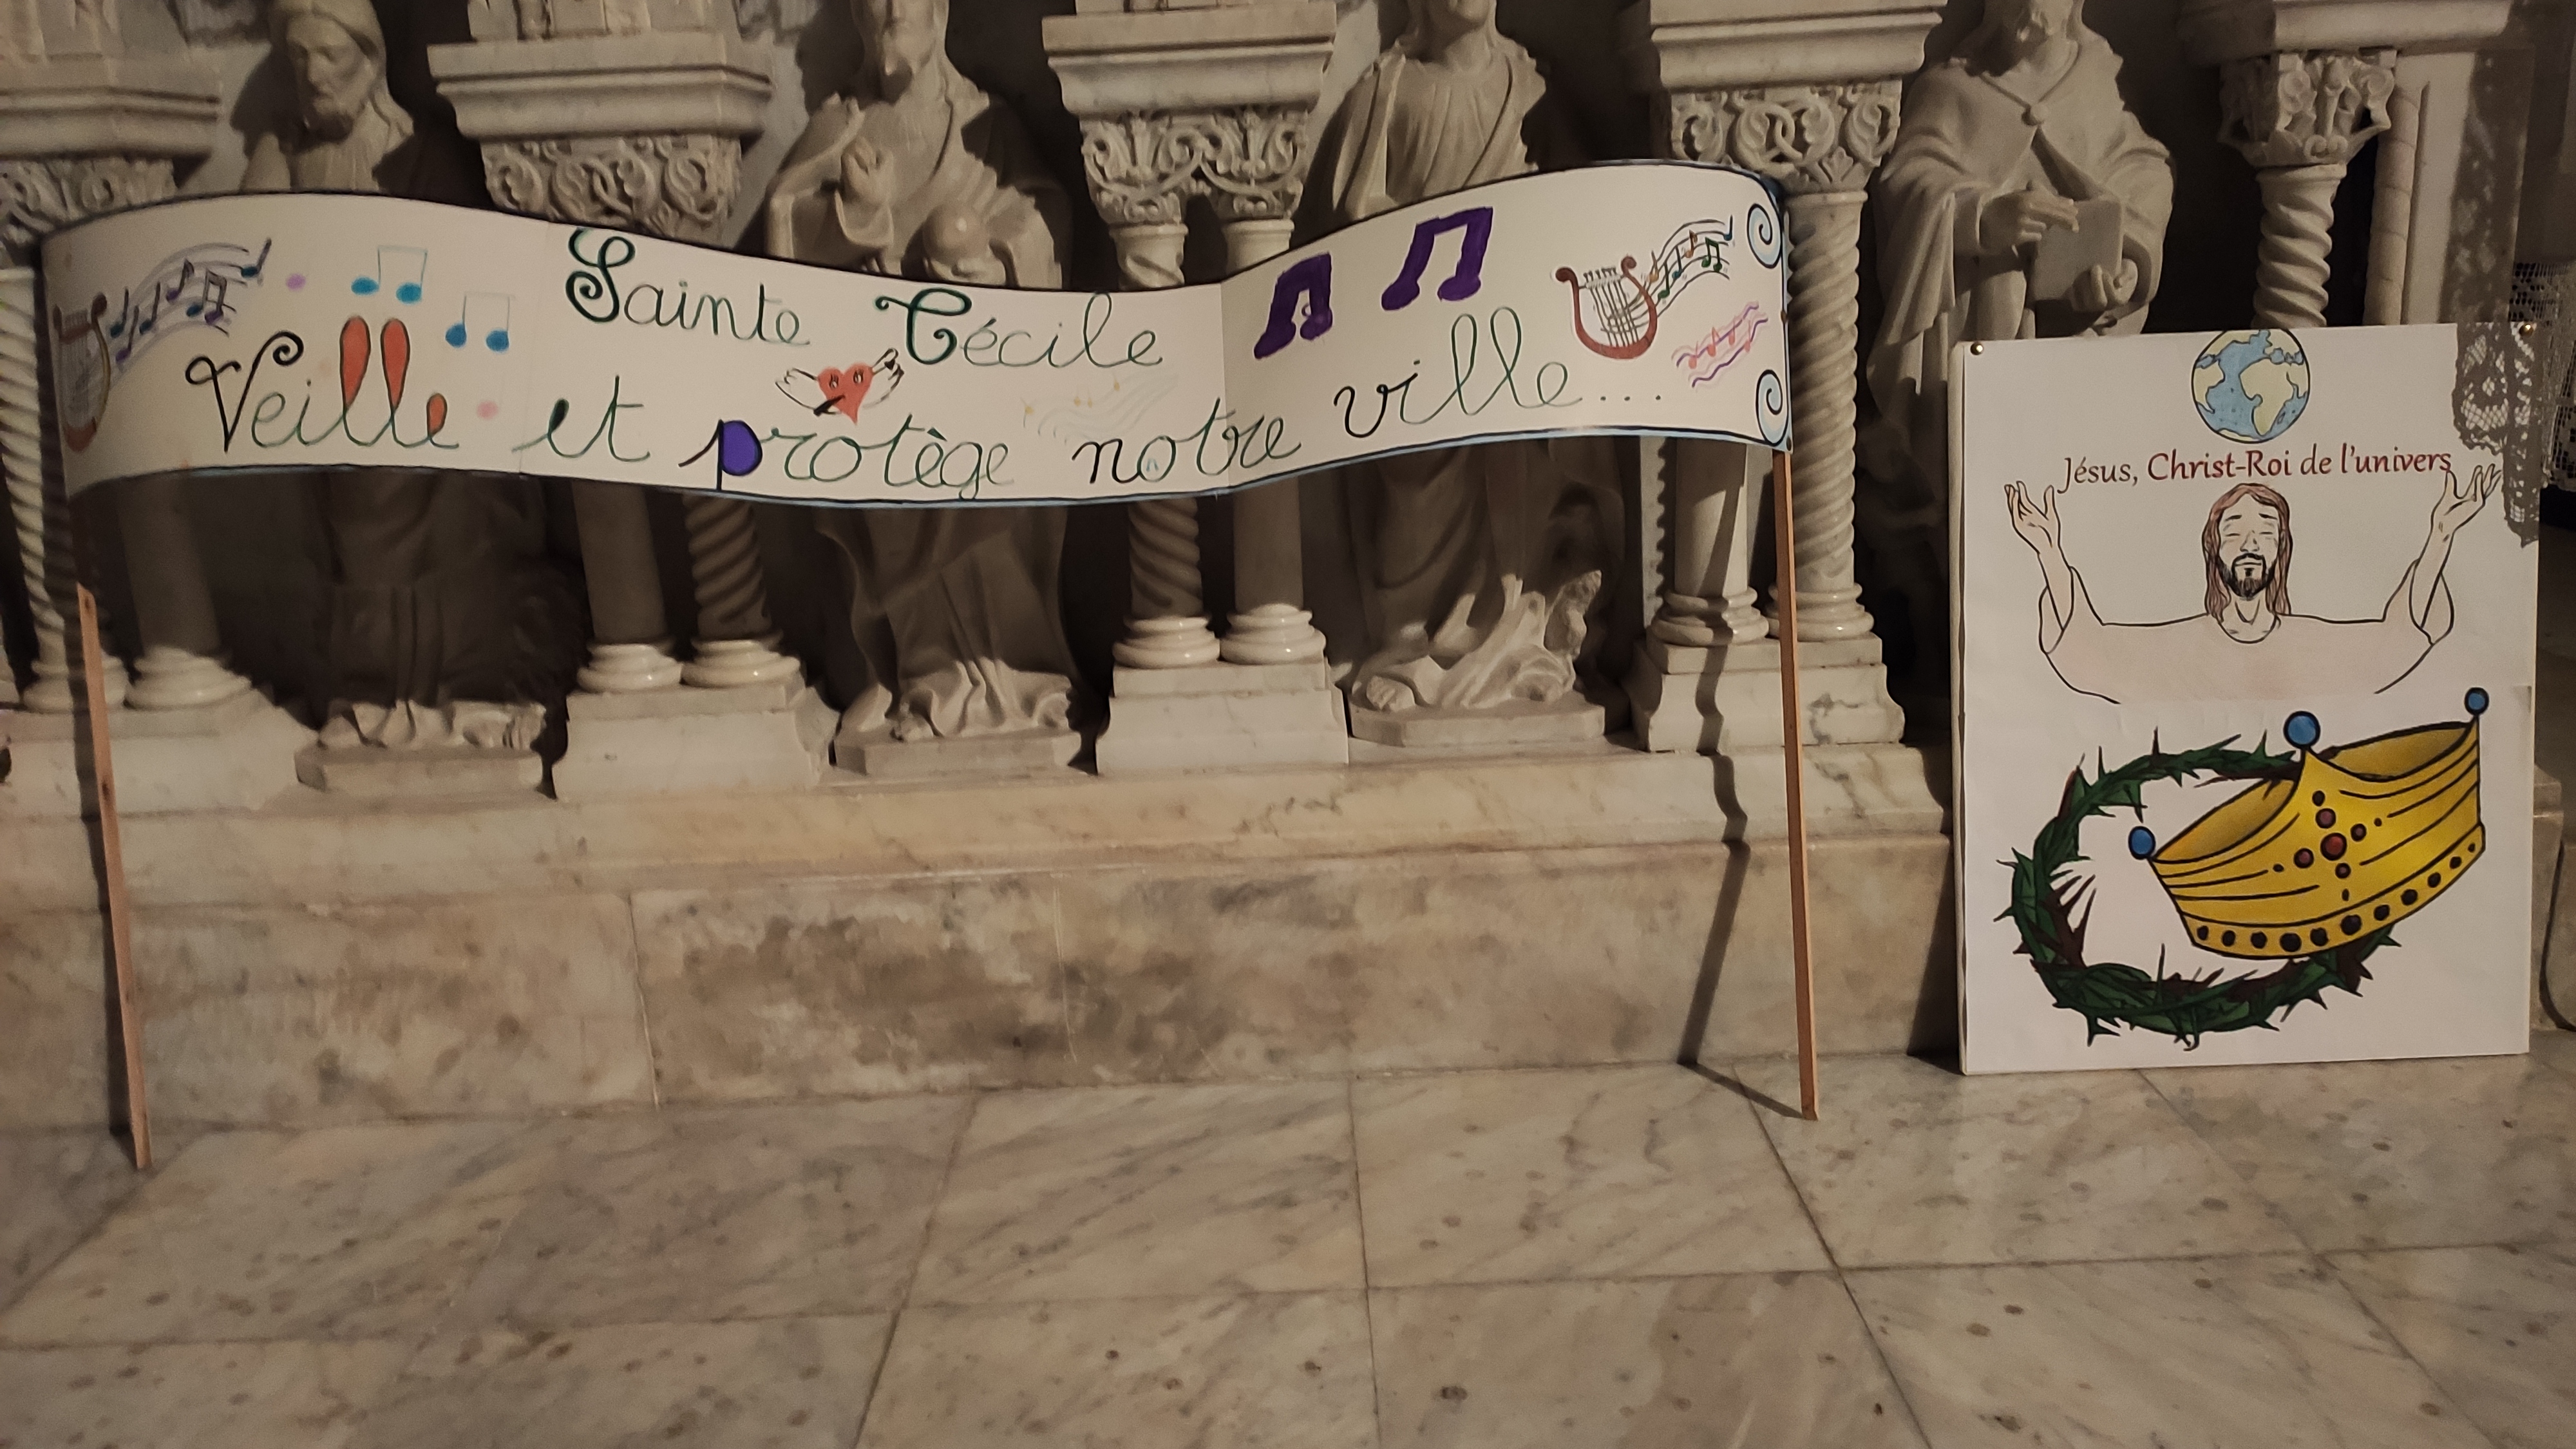 Sainte Cécile
Veille et protège notre ville...
Jésus, Christ-Roi de l'univers